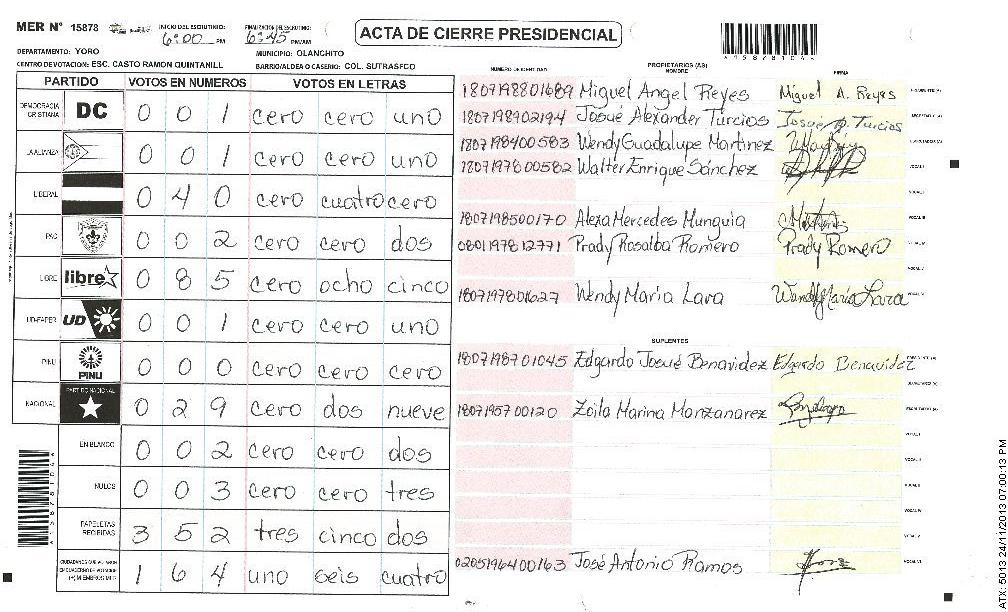 MER N° 15878 INICIO DEL ESCRUTINIO: 6:00 PM FINALIZACION DEL ESCRUTINIO: 6:45 PM/AM ACTA DE CIERRE PRESIDENCIAL
DEPARTAMENTO: YORO MUNICIPIO: OLANCHITO
CENTRO DE VOTACION: ESC. CASTO RAMON QUINTANILL BARRIO/ALDEA O CASERIO: COL. SUTRASFCO
PARTIDO VOTOS EN NUMEROS VOTOS EN LETRAS
DEMOCRACIA CRISTIANA DC 0 0 1 cero cero uno
LA ALIANZA 0 0 1 cero cero uno
LIBERAL 0 4 0 cero cuatro cero
PAC 0 0 2 cero cero dos
LIBRE libre 0 8 5 cero ocho cinco
UD-FAPER UD 0 0 1 cero cero uno
PINU PINU 0 0 0 cero cero cero
NACIONAL PARTIDO NACIONAL 0 2 9 cero dos nueve
EN BLANCO 0 0 2 cero cero dos
NULOS 0 0 3 cero cero tres
PAPELETAS RECIBIDAS 3 5 2 tres cinco dos
CIUDADANOS QUE VOTARON EN CUADERNO DE VOTACION (+) MIEMBROS MER 1 6 4 uno seis cuatro
NUMERO DE IDENTIDAD PROPIETARIOS (AS) NOMBRE FIRMA
1807198801689 Miguel Angel Reyes Miguel A. Reyes PRESIDENTE (A)
1807198902194 Josué Alexander Turcios Josue A. Turcios SECRETARIO (A)
1807198400583 Wendy Guadalupe Martinez ESCRUTADOR (A)
1807197800582 Walter Enrique Sánchez VOCAL I
VOCAL II
1807198500170 Alexa Mercedes Munguia VOCAL III
0801197812771 Prady Rosalba Romero Prady Romero VOCAL IV
VOCAL V
1807197801627 Wendy Maria Lara Wendy Maria Lara VOCAL VI
SUPLENTES
1807198701045 Edgardo Josué Benavidez Edgardo Benavidez PRESIDENTE (A)
SECRETARIO (A)
1807195700120 Zoila Marina Manzanarez ESCRUTADOR (A)
VOCAL I
VOCAL II
VOCAL III
VOCAL IV
VOCAL V
0205196400163 José Antonio Ramos VOCAL VI
ATX: 5013 24/11/2013 07:00:13 PM